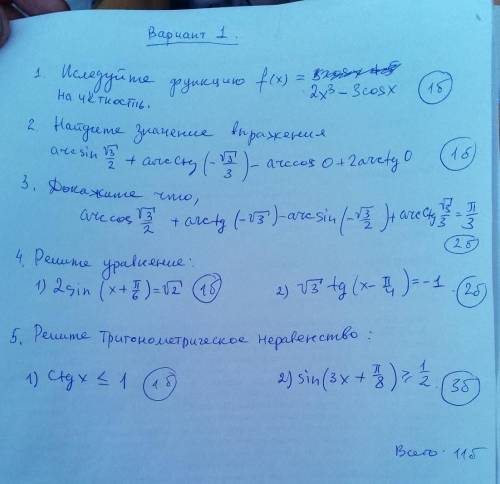 Вариант 1.
1. Иследуйте функцию f(x) =
2x³ – 3cosx (1б)
на чётность.
2. Найдите значение выражения
arcsin √3/2 + arcctg (-√3/3) – arccos 0 + 2arctg 0 (1б)
3. Докажите что,
arccos √3/2 + arctg (-√3) – arcsin (-√3/2) + arcctg √3/3 = π/3
(2б)
4. Решите уравнение:
1) 2sin (x + π/6) = √2 (1б) 2) √3 tg (x – π/4) = -1. (2б)
5. Решите тригонометрическое неравенство:
1) ctgx ≤ 1 (1б) 2) sin(3x + π/8) ≥ 1/2. (3б)
Всего: 11б